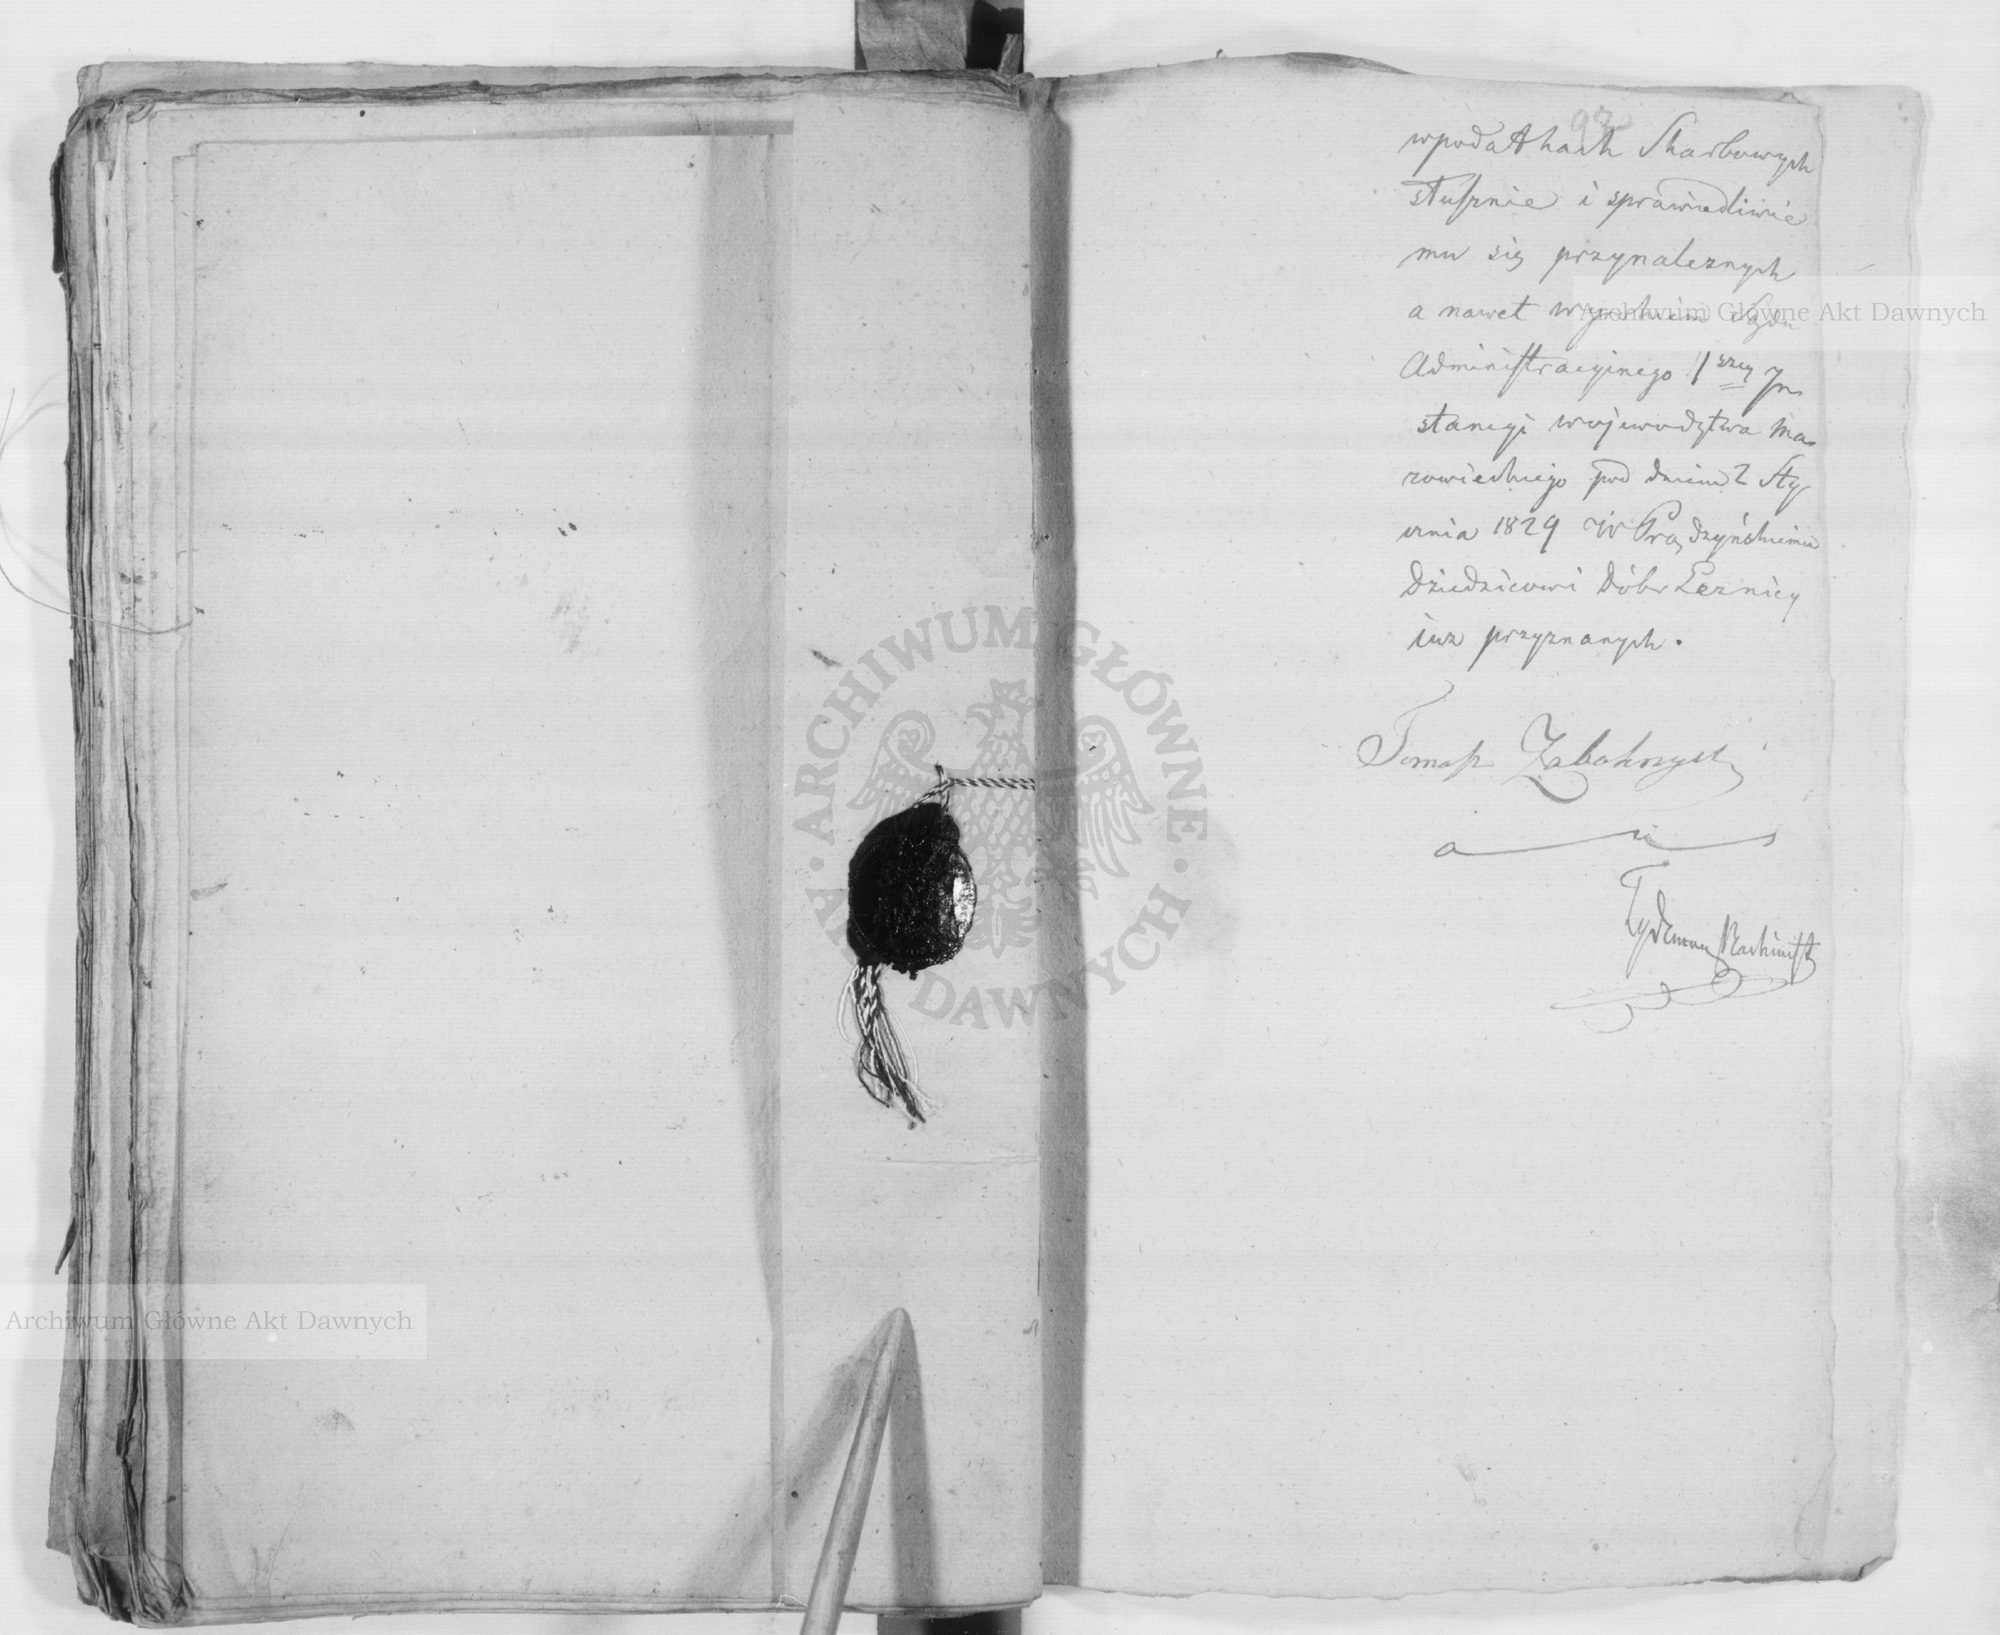 97
w podatkach Skarbowych
słusznie i sprawiedliwie
mu się przynaleznych
a nawet wyrokiem Sądu
Administracyinego 1szey In
stancyi wojewodztwa Ma
zowieckiego pod dniem 2 Sty
cznia 1829 W Prądzyńskiemu
Dziedzicowi Dóbr Leznicy
iuz przyznanych.
Tomasz Zabokrzycki
Archiwum Główne Akt Dawnych
Archiwum Główne Akt Dawnych
ARCHIWUM GŁÓWNE AKT DAWNYCH